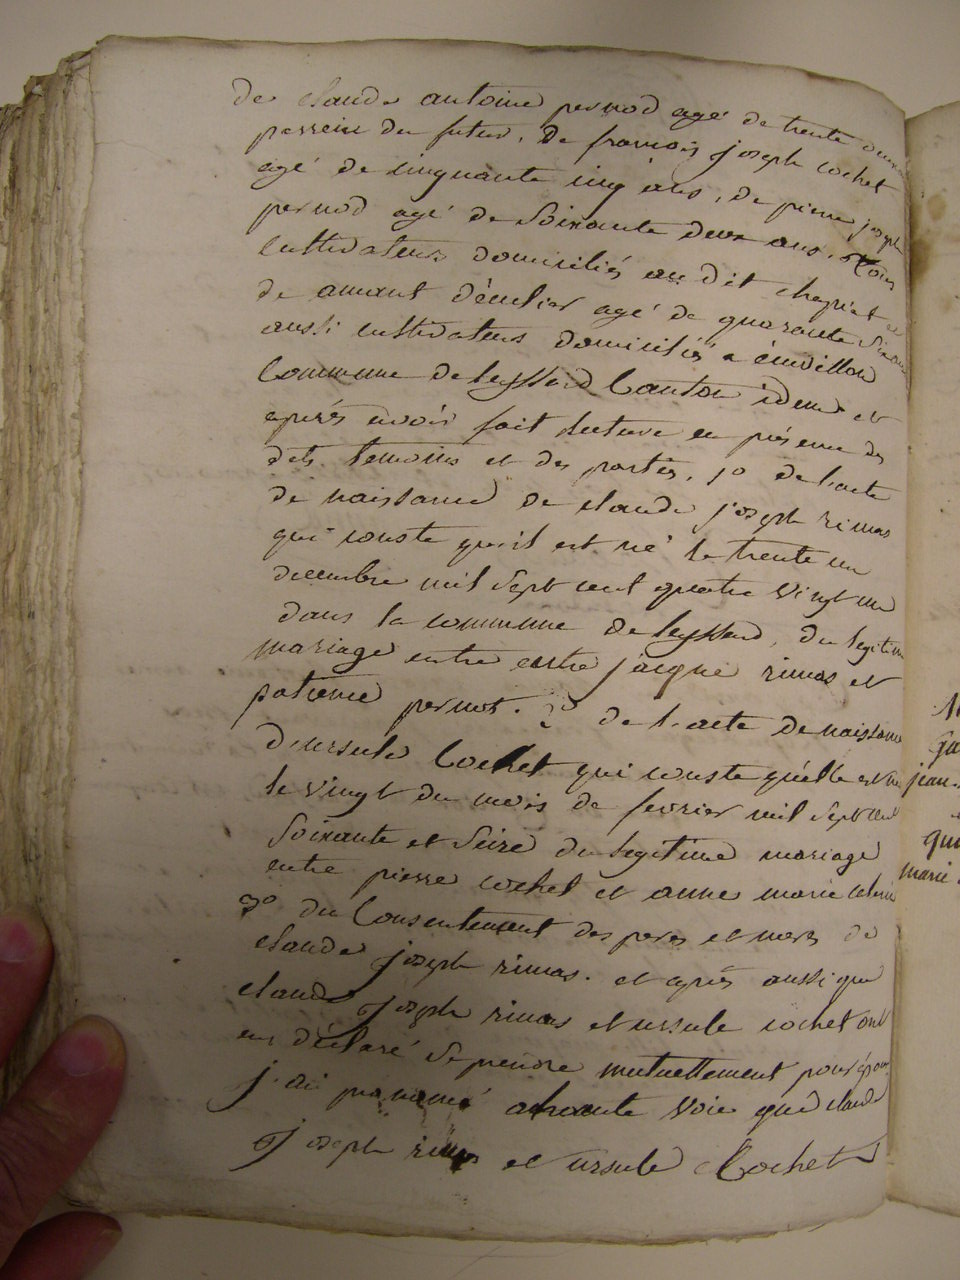 de claude antoine pernod agé de trente deux
parrein du futur, de francois joseph cochet
agé de cinquante cinq ans, de pierre joseph
pernod agé de soixante deux ans, tous
cultivateurs domiciliés au dit chapiat et
de amant agé de quarante six ans
aussi cultivateurs domiciliés a
Commune de leyssard Canton idem et
après avoir fait lecture en présence des
dits temoins et des parties, 1o de l'acte
de naissance de claude joseph rimas
qui conste qu'il est né le trente un
decembre mil sept cent quatre vingt un
dans la commune de leyssard, du legitime
mariage entre entre jacque rimas et
patience pernot. 2o de l'acte de naissance
d'ursule Cochet qui conste qu'elle est née
le vingt du mois de fevrier mil sept cent
soixante et seize du legitime mariage
entre pierre cochet et anne marie
3o du Consentement des peres et meres de
claude joseph rimas. et après aussi que
claude joseph rimas et ursule cochet ont
eu déclaré se prendre mutuellement pour époux
j'ai prononcé a haute voie que claude
joseph rimas et ursule Cochet
jean
qui
marie